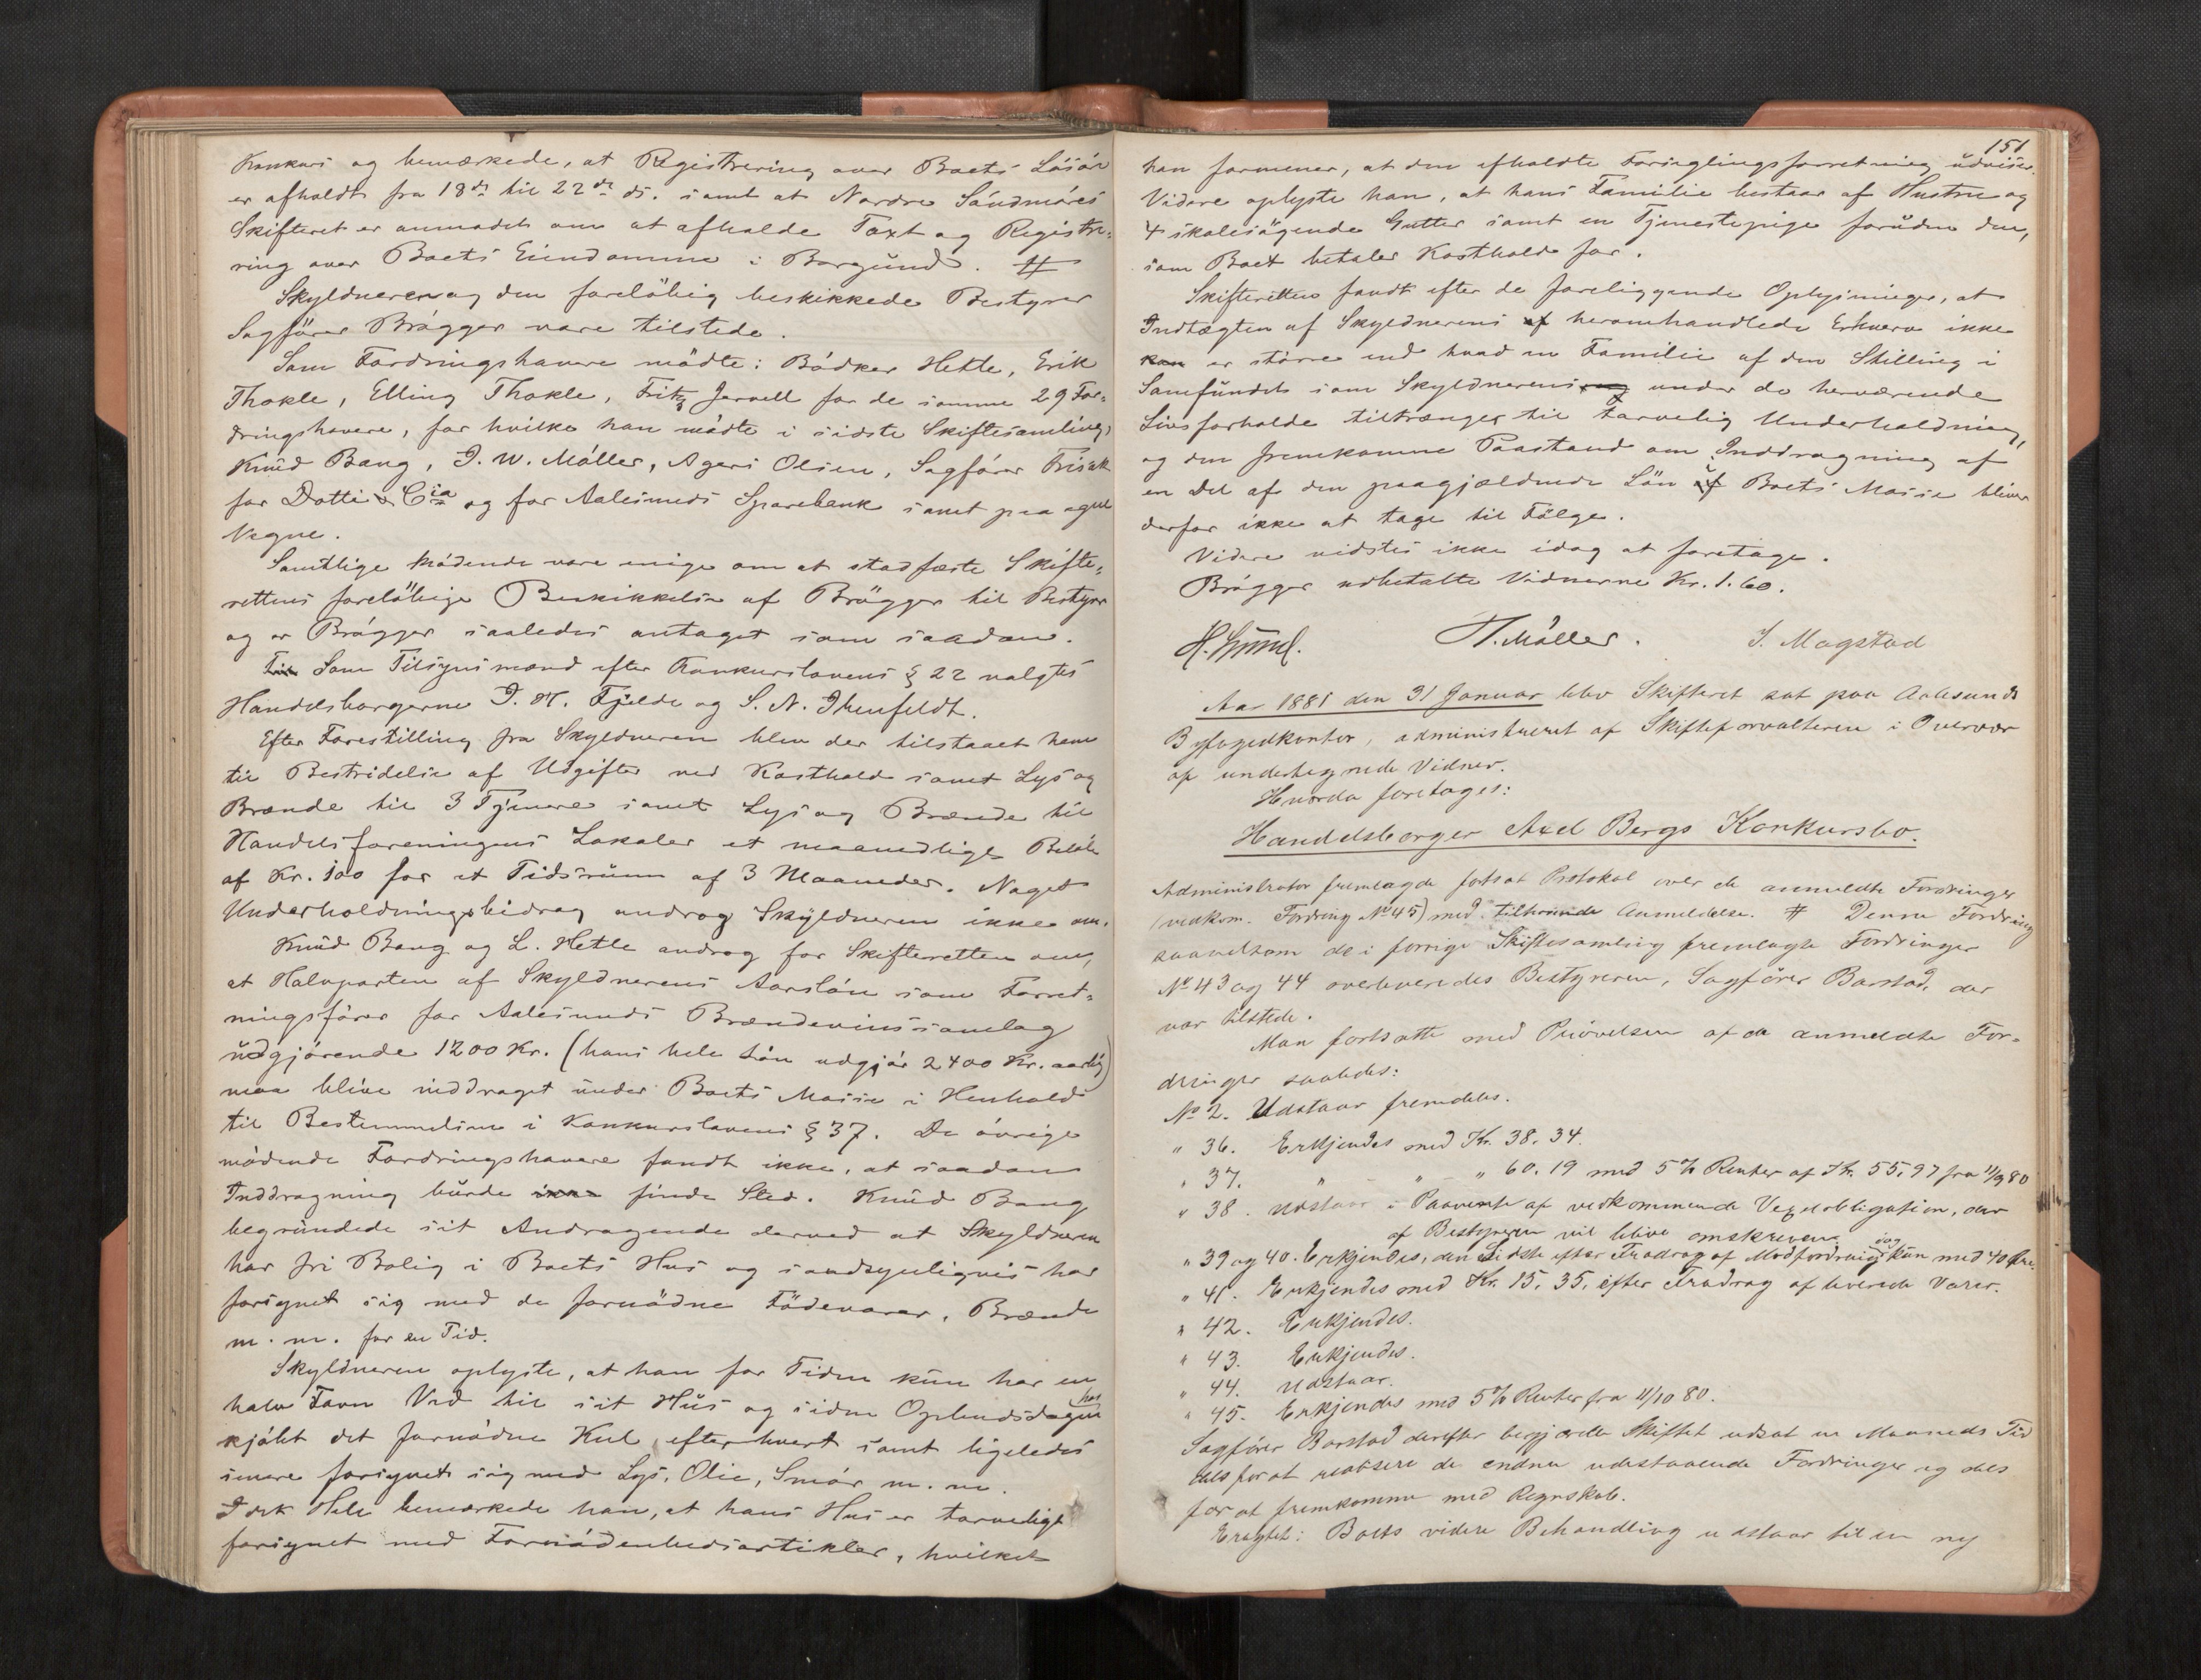 Konkurs og bemærkede, at Registrering over Boets Løsøre
er afholdt fra 18de til 22de ds. samt at Nordre Søndmøres
Skifteret er anmodet om at afholde Taxt og Registre-
ring over Boets Eiendomme i Borgund. #
Skyldneren og den foreløbig beskikkede Bestyrer
Sagfører Brøgger vare tilstede.
Som Fordringshavere mødte: Bødker Hetle, Erik
Thokle, Elling Thokle, Fritz Jervell for de samme 29 For-
dringshavere, for hvilke han mødte i sidste Skiftesamling,
Knud Bang, I. W. Møller, Agers Olsen, Sagfører Frisak
for Dotti & Cia og for Aalesunds Sparebank samt paa egne
Vegne.
Samtlige Mødende vare enige om at stadfæste Skifte-
rettens foreløbige Beskikkelse af Brøgger til Bestyrer
og er Brøgger saaledes antaget som saadan.
Til Som Tilsynsmænd efter Konkurslovens § 22 valgtes
Handelsborgerne I. H. Fjelde og S. N. Ihlenfeldt.
Efter Forestilling fra Skyldneren blev der tilstaaet ham
til Bestridelse af Udgifter ved Kosthold samt Lys og
Brænde til 3 Tjenere samt Lys og Brænde til
Handelsforeningens Lokaler et maanedligt Beløb
af Kr. 100 for et Tidsrum af 3 Maaneder. Noget
Underholdningsbidrag androg Skyldneren ikke om.
Knud Bang og L. Hetle androg for Skifteretten om,
at Halvparten af Skyldnerens Aarsløn som Forret-
ningsfører for Aalesunds Brændevinssamlag
udgjørende 1200 Kr. (hans hele Løn udgjør 2400 Kr. aarlig)
maa blive inddraget under Boets Masse i Henhold
til Bestemmelsen i Konkurslovens § 37. De øvrige
mødende Fordringshavere fandt ikke, at saadan
Inddragning burde ikke finde Sted. Knud Bang
begrundede sit Andragende derved at Skyldneren
har fri Bolig i Boets Hus og sandsynligvis har
forsynet sig med de fornødne Fødevarer, Brænde
m. m. for en Tid.
Skyldneren oplyste, at han for Tiden kun har en
halv Favn Ved til sit Hus og siden Opbudsdagen har
kjøbt det fornødne Kul efterhvert samt ligeledes
senere forsynet sig med Lys, Olie, Smør m. m.
I det Hele bemærkede han, at hans Hus er tarveligt
forsynet med Fornødenhedsartikler, hvilket
151
han formener, at den afholdte Forseglingsforretning udviser.
Videre oplyste han, at hans Familie bestaar af Hustru og
4 skolesøgende Gutter samt en Tjenestepige foruden den,
som Boet betaler Kosthold for.
Skifteretten fandt efter de foreliggende Oplysninger, at
Indtægten af Skyldnerens af heromhandlede Erhverv ikke
kan er større end hvad en Familie af den Stilling i
Samfundet som Skyldnerens og under de herværende
Livsforholde tiltrænger til tarvelig Underholdning,
og den fremkomne Paastand om Inddragning af
en Del af den paagjældende Løn af Boets Masse bliver
derfor ikke at tage til Følge.
Videre vidstes ikke idag at foretage.
Brøgger udbetalte Vidnerne Kr. 1.60.
H. Møller. I. Magstad
Aar 1881 den 31 Januar blev Skifteret sat paa Aalesunds
Byfogedkontor, administreret af Skifteforvalteren i Overvær
af undertegnede Vidner.
Hvorda foretoges:
Handelsborger Axel Bergs Konkursbo.
Administrator fremlagde fortsat Protokol over de anmeldte Fordringer
(vedkom. Fordring No 45) med tilhørende Anmeldelse. # Denne Fordring
saavelsom de i forrige Skiftesamling fremlagte Fordringer
No 43 og 44 overleveredes Bestyreren, Sagfører Barstad, der
var tilstede.
Man fortsatte med Prøvelsen af de anmeldte For-
dringer saaledes:
No 2. Udstaar fremdeles.
" 36. Erkjendes med Kr. 38. 34.
" 37. " " " 60. 19 med 5 % Renter af Kr. 55,97 fra 11/9 80
" 38. Udstaar i Paavente af vedkommende Vexelobligation, der
af Bestyreren vil blive omskreven.
" 39 og 40. Erkjendes, den Sidste efter Fradrag af Modfordring dog kun med 40 Øre.
" 41. Erkjendes med Kr. 15. 35. efter Fradrag af leverede Varer.
" 42. Erkjendes.
" 43. Erkjendes.
" 44. Udstaar.
" 45. Erkjendes med 5 % Renter fra 11/10 80.
Sagfører Barstad derefter begjærede Skiftet udsat en Maaneds Tid
dels for at realisere de endnu udestaaende Fordringer og dels
for at fremkomme med Regnskab.
Eragtet: Boets videre Behandling udstaar til en ny